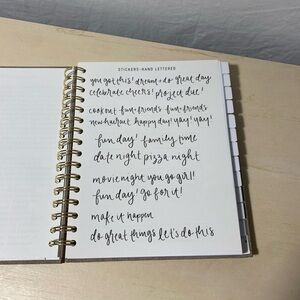 STICKERS-HAND LETTERED
you got this! dream+do great day
celebrate cheers! project due!
cookout fun+friends fun+friends
new haircut happy day! yay! yay!
fun day! family time
date night pizza night
movie night you go girl!
fun day! go for it!
make it happen
do great things let's do this